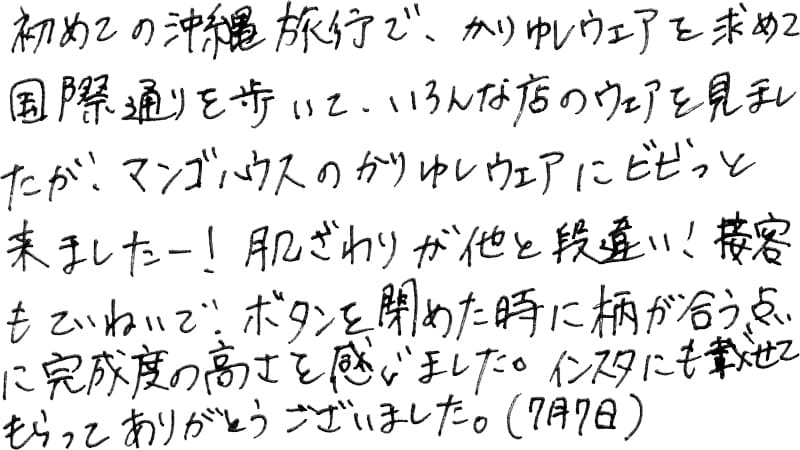 初めての沖縄旅行で、かりゆしウェアを求めて
国際通りを歩いて、いろんな店のウェアを見まし
たが、マンゴハウスのかりゆしウェアにビビっと
来ましたー!肌ざわりが他と段違い!接客
もていねいで、ボタンを閉めた時に柄が合う点
に完成度の高さを感じました。インスタにも載せて
もらってありがとうございました。(7月7日)